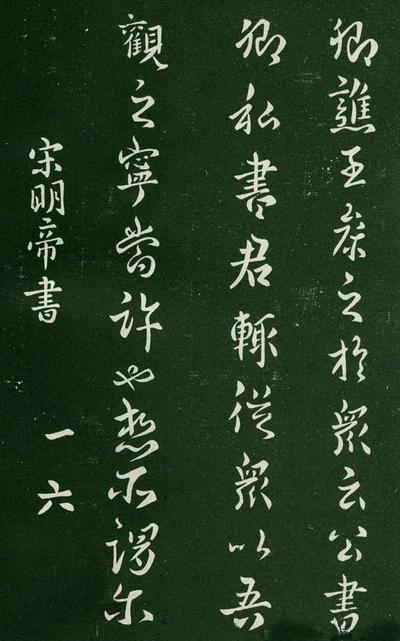 卿譙王之於眾云公書
卿私書君輒從眾以吾
觀之寧當許也想不尓
宋明帝書
一六